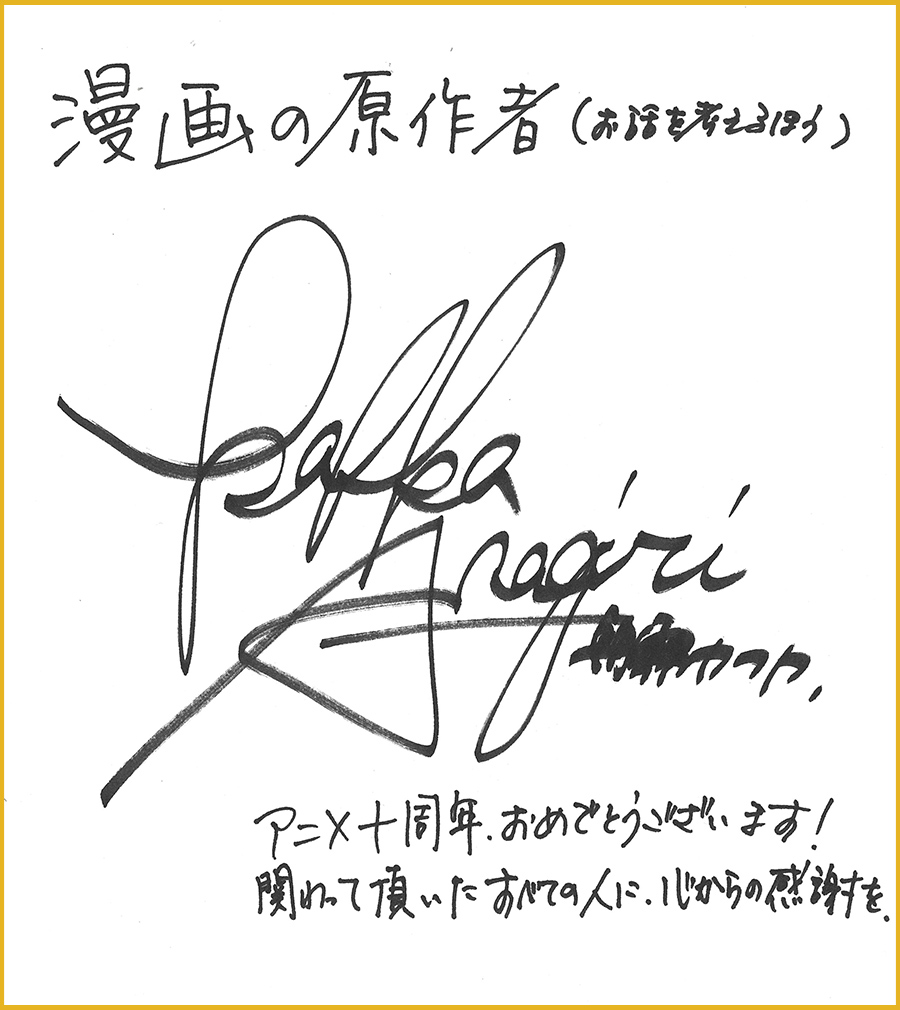 漫画の原作者(お話を考えるほう)
Kafka
Asagiri
アニメ十周年、おめでとうございます!
関わって頂いたすべての人に、心からの感謝を。